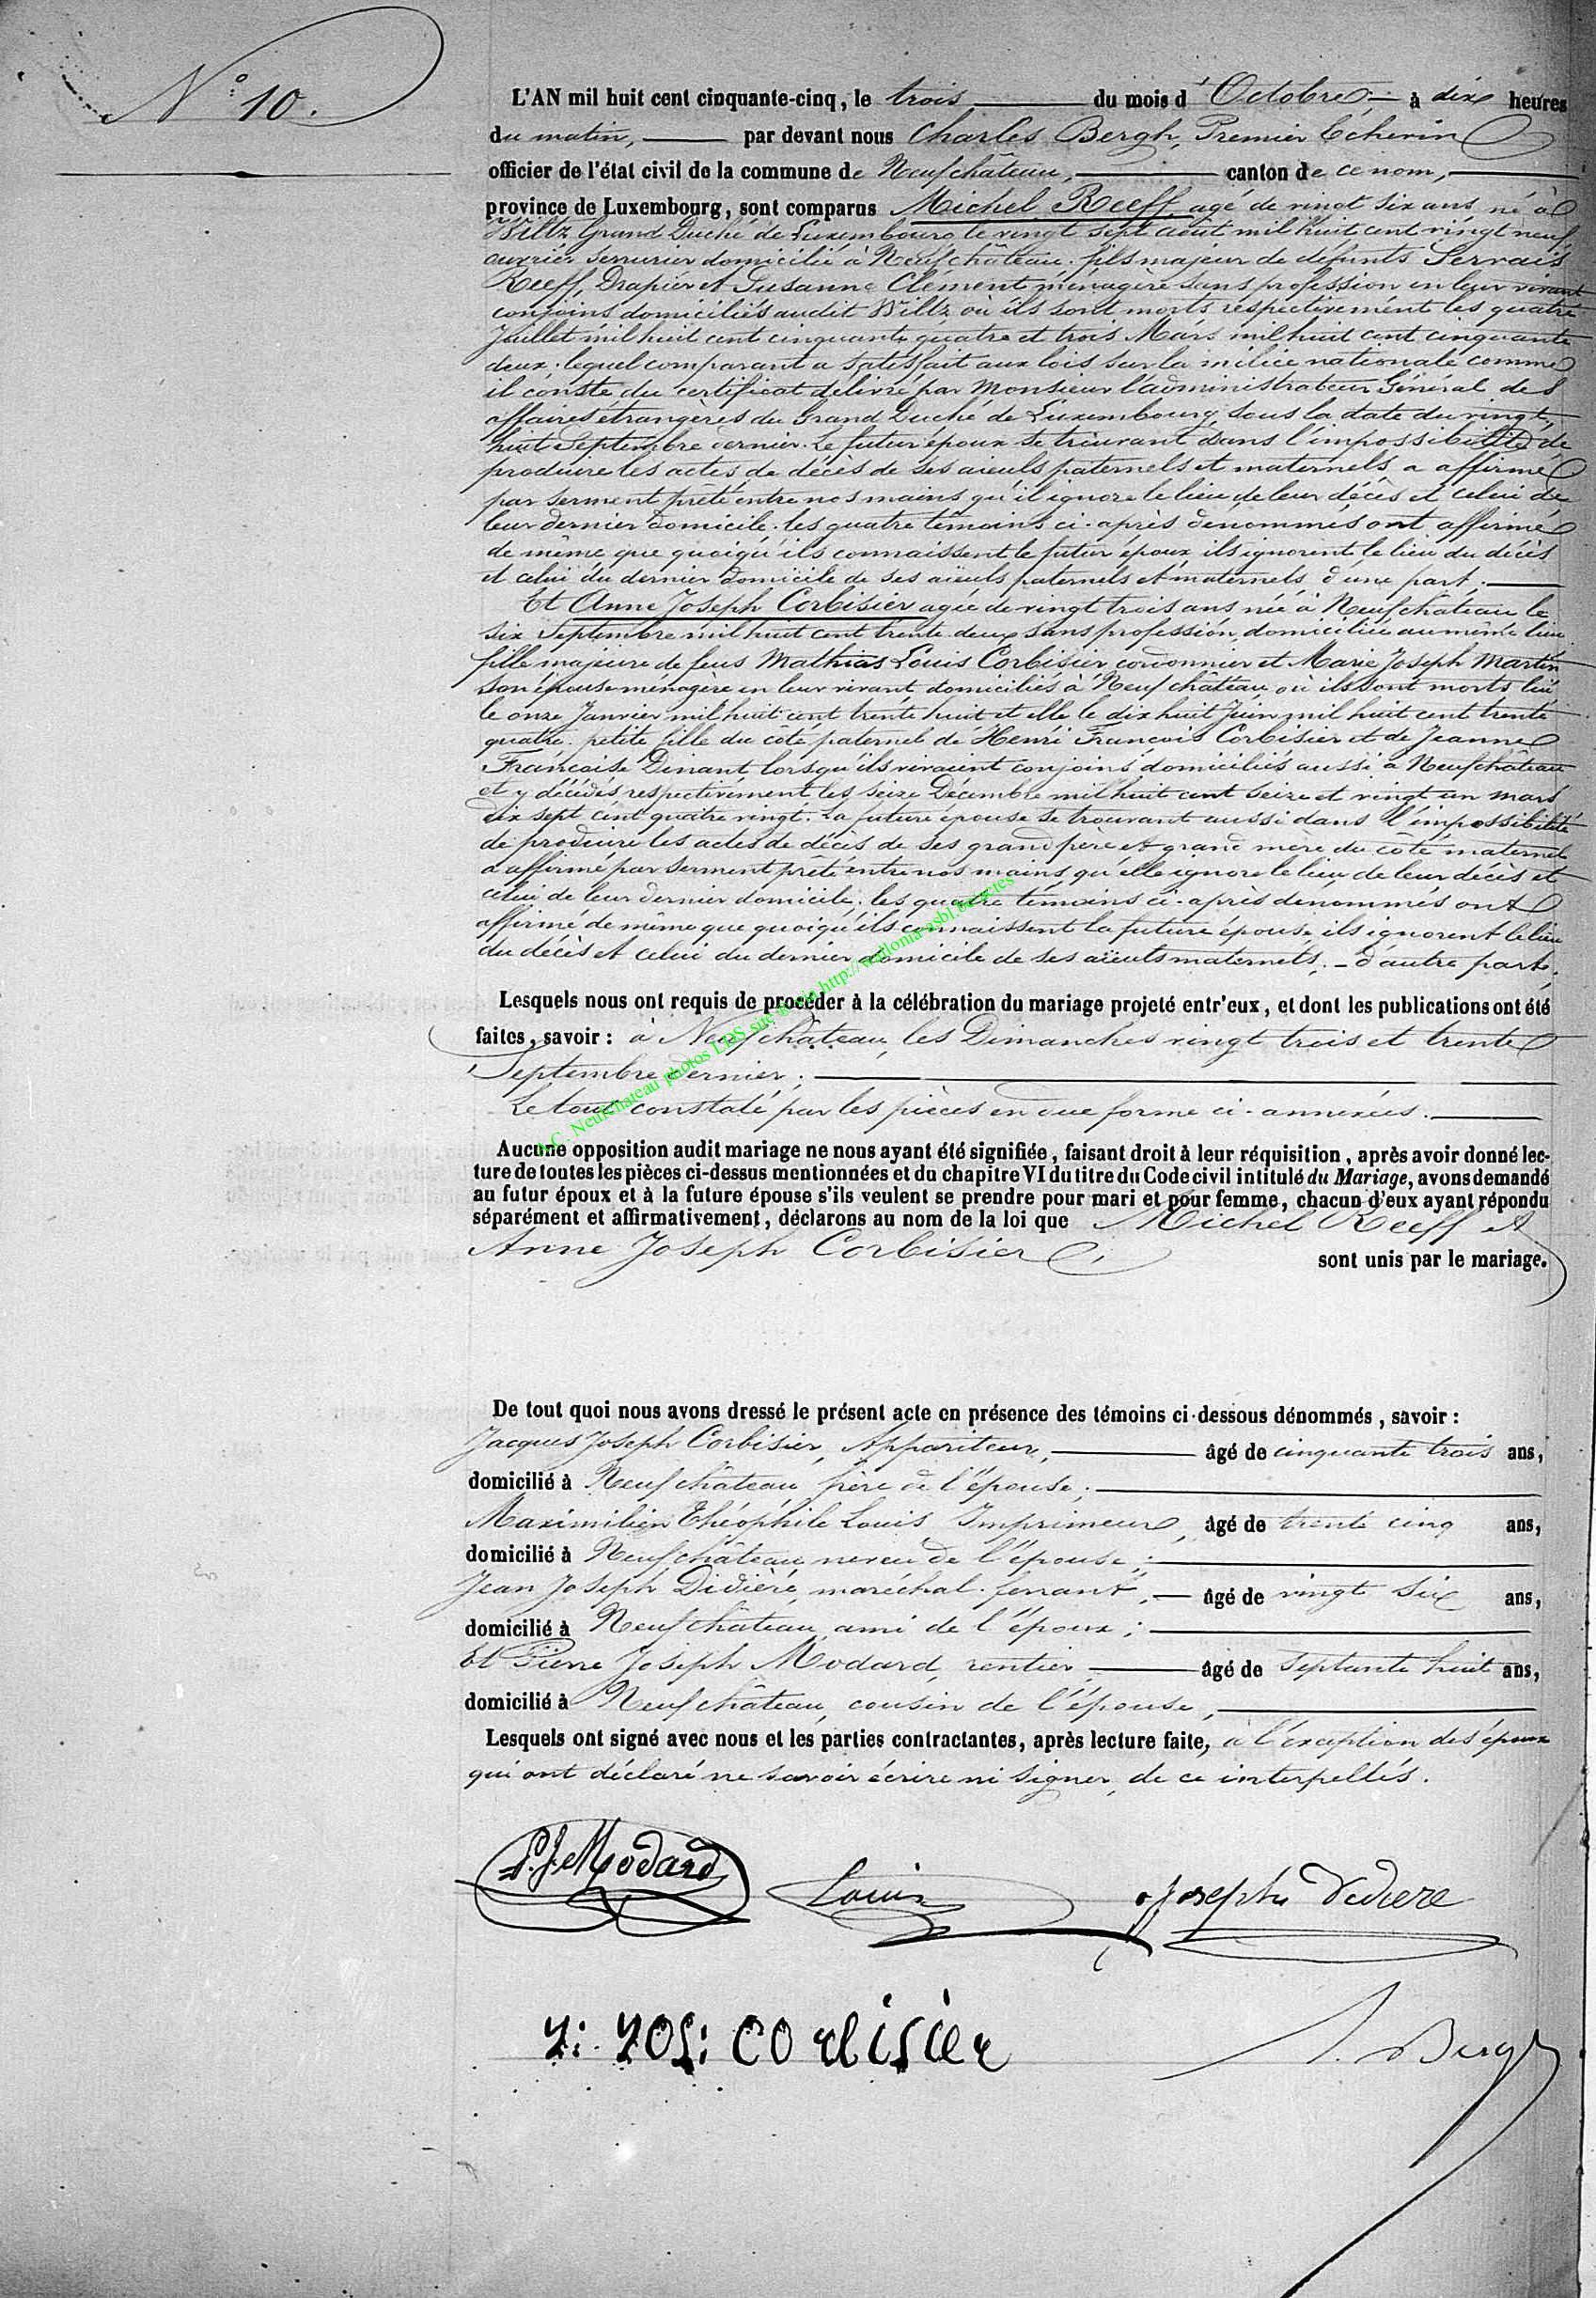 N° 10.
L'AN mil huit cent cinquante-cinq, le trois du mois d'Octobre à dix heures
du matin, par devant nous Charles Bergh, Premier Echevin
officier de l'état civil de la commune de Neufchâteau, canton de ce nom,
province de Luxembourg, sont comparus Michel Reeff, agé de vingt six ans, né à
Wiltz Grand Duché de Luxembourg le vingt sept août mil huit cent vingt neuf,
ouvrier serrurier domicilié à Neufchâteau, fils majeur de défunts Servais
Reeff, Drapier et Susanne Clément ménagère sans profession en leur vivant
conjoins domiciliés audit Wiltz où ils sont morts respectivement les quatre
Juillet mil huit cent cinquante quatre et trois Mars mil huit cent cinquante
deux; lequel comparant a satisfait aux lois sur la milice nationale comme
il conste du certificat délivré par Monsieur l'administrateur Général des
affaires étrangères du Grand Duché de Luxembourg, sous la date du vingt
huit Septembre dernier. Le futur époux se trouvant dans l'impossibilité de
produire les actes de décès de ses aïeuls paternels et maternels a affirmé
par serment prêté entre nos mains qu'il ignore le lieu de leur décès et celui de
leur dernier domicile. les quatre témoins ci-après dénommés ont affirmé
de même que quoiqu'ils connaissent le futur époux ils ignorent le lieu du décès
et celui du dernier domicile de ses aïeuls paternels et maternels, d'une part;
Et Anne Joseph Corbisier agée de vingt trois ans née à Neufchâteau le
six Septembre mil huit cent trente deux sans profession, domiciliée au même lieu
fille majeure de feus Mathias Louis Corbisier cordonnier et Marie Joseph Martin
son épouse ménagère en leur vivant domiciliés à Neufchâteau où ils sont morts lui
le onze Janvier mil huit cent trente huit et elle le dix huit Juin mil huit cent trente
quatre. petite fille du côté paternel de Henri François Corbisier et de Jeanne
Françoise Dinant lorsqu'ils vivaient conjoins domiciliés aussi à Neufchâteau
et y décédés respectivement les seize Décembre mil huit cent seize et vingt un mars
dix sept cent quatre vingt. La future épouse se trouvant aussi dans l'impossibilité
de produire les actes de décès de ses grand père et grand mère du côté maternel
a affirmé par serment prêté entre nos mains qu'elle ignore le lieu de leur décès et
celui de leur dernier domicile; les quatre témoins ci-après dénommés ont
affirmé de même que quoiqu'ils connaissent la future épouse ils ignorent le lieu
du décès et celui du dernier domicile de ses aïeuls maternels. - d'autre part.
Lesquels nous ont requis de procéder à la célébration du mariage projeté entr'eux, et dont les publications ont été
faites, savoir: à Neufchâteau, les Dimanches vingt trois et trente
Septembre dernier;
Le tout constaté par les pièces en due forme ci-annexées.
Aucune opposition audit mariage ne nous ayant été signifiée, faisant droit à leur réquisition, après avoir donné lec-
ture de toutes les pièces ci-dessus mentionnées et du chapitre VI du titre du Code civil intitulé du Mariage, avons demandé
au futur époux et à la future épouse s'ils veulent se prendre pour mari et pour femme, chacun d'eux ayant répondu
séparément et affirmativement, déclarons au nom de la loi que Michel Reeff et
Anne Joseph Corbisier,
sont unis par le mariage.
De tout quoi nous avons dressé le présent acte en présence des témoins ci-dessous dénommés, savoir:
Jacques Joseph Corbisier, Appariteur, âgé de cinquante trois ans,
domicilié à Neufchâteau frère de l'épouse;
Maximilien Théophile Louis, Imprimeur, âgé de trente cinq ans,
domicilié à Neufchâteau neveu de l'épouse;
Jean Joseph Didière, maréchal-ferrant, âgé de vingt six ans,
domicilié à Neufchâteau, ami de l'époux;
Et Pierre Joseph Modard, rentier âgé de septante huit ans,
domicilié à Neufchâteau, cousin de l'épouse,
Lesquels ont signé avec nous et les parties contractantes, après lecture faite, à l'exception des époux
qui ont déclaré ne savoir écrire ni signer, de ce interpellés.
P. J. Modard
Louis
Joseph Dediere
J: JOS: corbisier
Bergh
A.C. Neufchateau photos LDS, site http://wallonia-asbl.be/actes